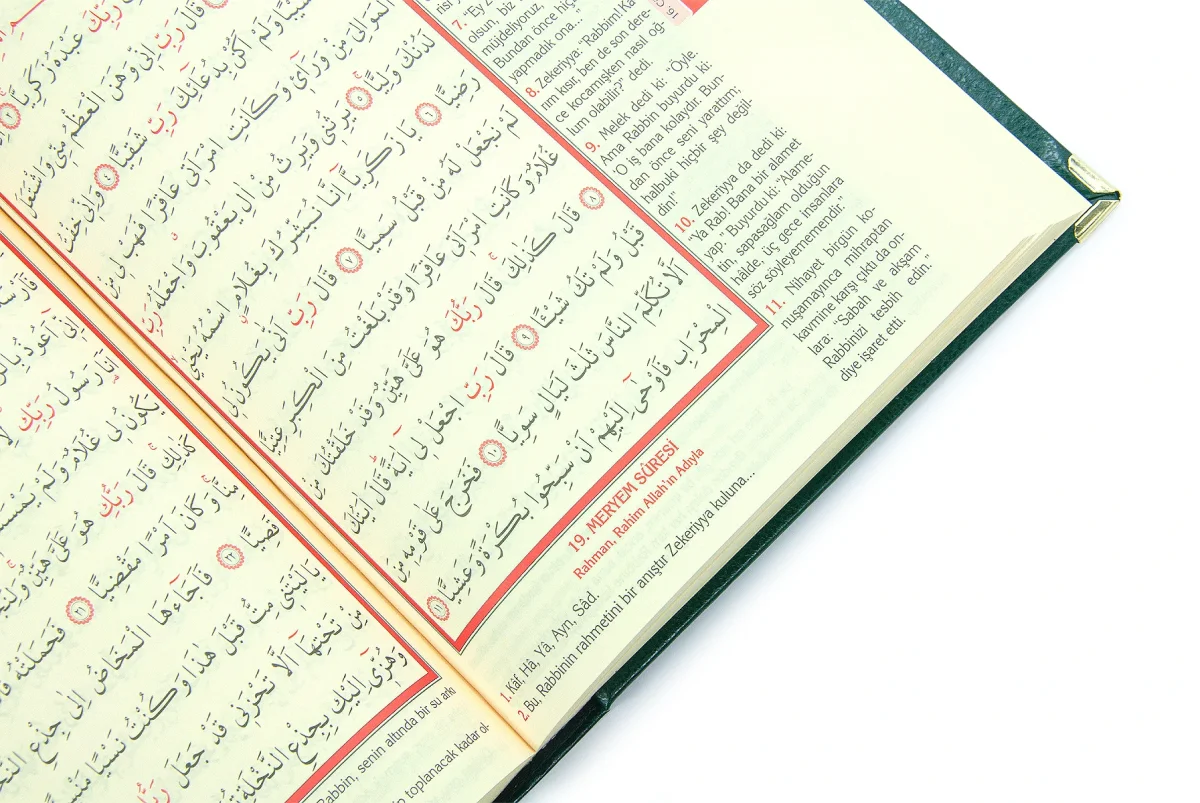 رَبِّكَ عَبْدَهُ زَكَرِيَّا ﴿٢﴾
قَالَ رَبِّ اِنّٖي وَهَنَ الْعَظْمُ مِنّٖي وَاشْتَعَلَ
وَلَمْ اَكُنْ بِدُعَائِكَ رَبِّ شَقِيًّا ﴿٤﴾ وَاِنّٖي خِفْتُ
الْمَوَالِيَ مِنْ وَرَائٖي وَكَانَتِ امْرَاَتٖي عَاقِرًا فَهَبْ لٖي مِنْ
لَدُنْكَ وَلِيًّا ﴿٥﴾ يَرِثُنٖي وَيَرِثُ مِنْ اٰلِ يَعْقُوبَ وَاجْعَلْهُ رَبِّ
رَضِيًّا ﴿٦﴾ يَا زَكَرِيَّا اِنَّا نُبَشِّرُكَ بِغُلَامٍ اسْمُهُ يَحْيٰى
لَمْ نَجْعَلْ لَهُ مِنْ قَبْلُ سَمِيًّا ﴿٧﴾ قَالَ رَبِّ اَنّٰى يَكُونُ لٖي
غُلَامٌ وَكَانَتِ امْرَاَتٖي عَاقِرًا وَقَدْ بَلَغْتُ مِنَ الْكِبَرِ عِتِيًّا
﴿٨﴾ قَالَ كَذٰلِكَ قَالَ رَبُّكَ هُوَ عَلَيَّ هَيِّنٌ وَقَدْ خَلَقْتُكَ مِنْ
قَبْلُ وَلَمْ تَكُ شَيْـًٔا ﴿٩﴾ قَالَ رَبِّ اجْعَلْ لٖي اٰيَةً قَالَ اٰيَتُكَ
اَلَّا تُكَلِّمَ النَّاسَ ثَلٰثَ لَيَالٍ سَوِيًّا ﴿١٠﴾ فَخَرَجَ عَلٰى قَوْمِهٖ مِنَ
الْمِحْرَابِ فَاَوْحٰى اِلَيْهِمْ اَنْ سَبِّحُوا بُكْرَةً وَعَشِيًّا ﴿١١﴾
olsun, biz
müjdeliyoruz,
Bundan önce hiç
yapmadık ona...
8. Zekeriyya: "Rabbim! Ka-
rım kısır, ben de son dere-
ce kocamışken nasıl oğ-
lum olabilir?" dedi.
9. Melek dedi ki: "Öyle.
Ama Rabbin buyurdu ki:
'O iş bana kolaydır. Bun-
dan önce seni yarattım;
halbuki hiçbir şey değil-
din!'
10. Zekeriyya da dedi ki:
"Ya Rab! Bana bir alamet
yap." Buyurdu ki: "Alame-
tin, sapasağlam olduğun
hâlde, üç gece insanlara
söz söyleyememendir."
11. Nihayet birgün ko-
nuşamayınca mihraptan
kavmine karşı çıktı da on-
lara: "Sabah ve akşam
Rabbinizi tesbih edin."
diye işaret etti.
19. MERYEM SÛRESİ
Rahman, Rahim Allah'ın Adıyla
1. Kâf, Hâ, Yâ, Ayn, Sâd.
2. Bu, Rabbinin rahmetini bir anıştır Zekeriyya kuluna...
اَعُوذُ
رَسُولُ رَبِّكِ
يَكُونُ لٖي غُلَامٌ وَلَمْ يَمْسَسْنٖي
كَذٰلِكِ قَالَ رَبُّكِ هُوَ عَلَيَّ هَيِّنٌ
مِنَّا وَكَانَ اَمْرًا مَقْضِيًّا ﴿٢١﴾ فَحَمَلَتْهُ
قَصِيًّا ﴿٢٢﴾ فَاَجَاءَهَا الْمَخَاضُ اِلٰى جِذْعِ
يَا لَيْتَنٖي مِتُّ قَبْلَ هٰذَا وَكُنْتُ نَسْيًا
مِنْ تَحْتِهَا اَلَّا تَحْزَنٖي قَدْ جَعَلَ رَبُّكِ
وَهُزّٖي اِلَيْكِ بِجِذْعِ النَّخْلَةِ
Rabbin, senin altında bir su arkı
toplanacak kadar ol-